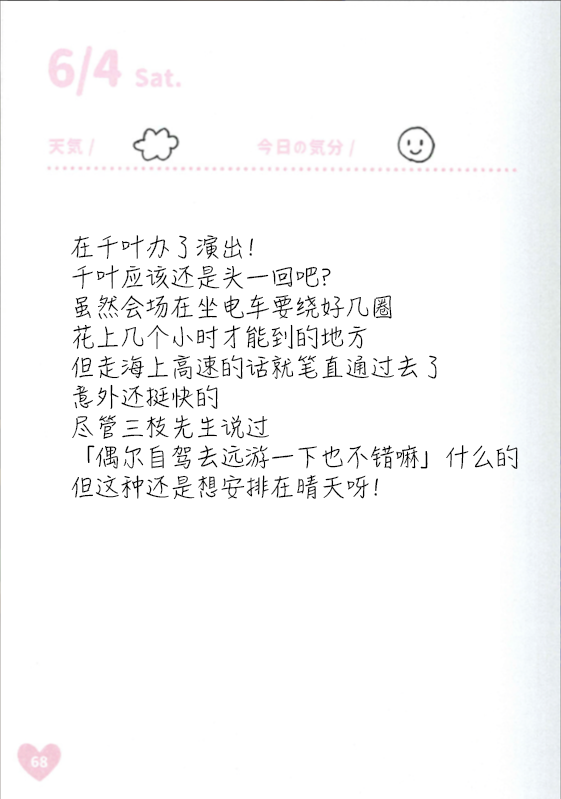 6/4 Sat.
天気 / 今日の気分 /
在千叶办了演出!
千叶应该还是头一回吧?
虽然会场在坐电车要绕好几圈
花上几个小时才能到的地方
但走海上高速的话就笔直通过去了
意外还挺快的
尽管三枝先生说过
「偶尔自驾去远游一下也不错嘛」什么的
但这种还是想安排在晴天呀!
68